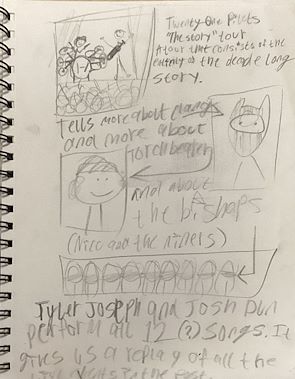 Twenty One Pilots
"The story" tour
A tour that consists of the
entirety of the decade long
story.
Tells more about clancy
and more about
torchbearer
and about
the bishops
(Nico and the niners)
Tyler Joseph and Josh Dun
perform all 12 (?) songs. It
gives us a replay of all the
in the past